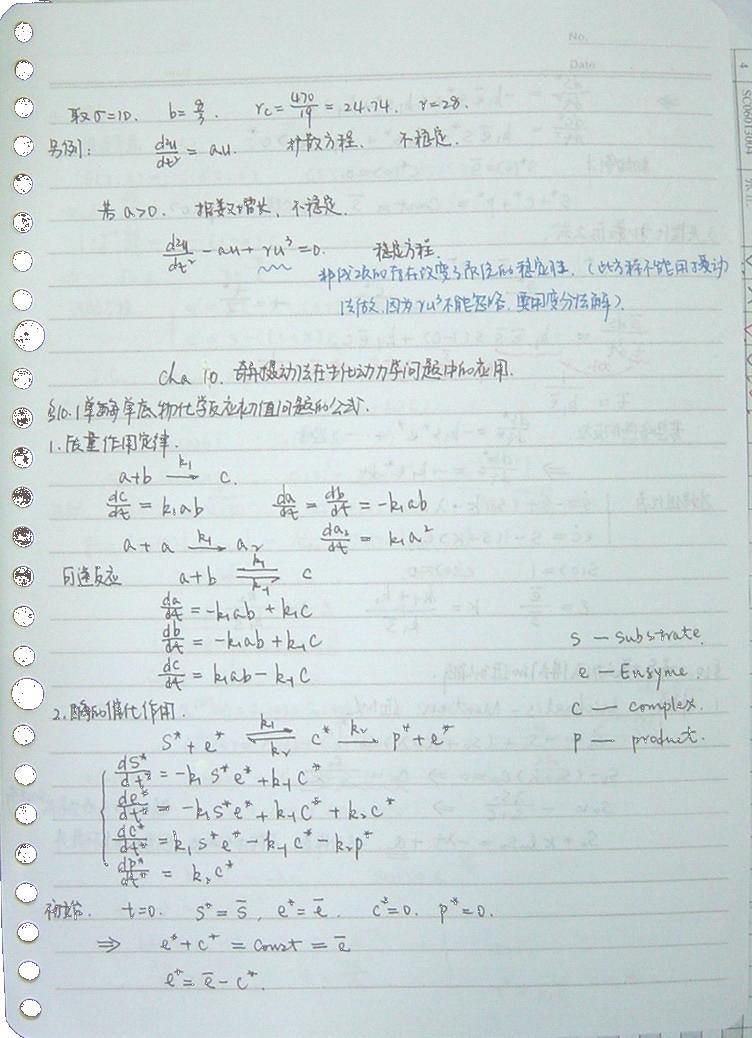 No.
Date
取σ=10. b=8/3. r_c=470/19=24.74. r=28.
另例: d²u/dt²=au. 扩散方程. 不稳定.
若a>0. 指数增长. 不稳定.
d²u/dt²-au+ru³=0. 稳定方程.
非线性项的存在改变了系统的稳定性. (此方程不能用摄动
法做, 因为ru³不能忽略, 要用变分法解).
Cha 10. 奇异摄动法在生化动力学问题中的应用.
§10.1单酶单底物化学反应初值问题的公式.
1.质量作用定律.
a+b —k₁→ c.
dc/dt=k₁ab da/dt=db/dt=-k₁ab
a+a —k₁→ a₂ da₂/dt=k₁a²
可逆反应 a+b ⇌ (k₁, k₋₁) c
da/dt=-k₁ab+k₋₁c
db/dt=-k₁ab+k₋₁c
dc/dt=k₁ab-k₋₁c
s — substrate.
e — Ensyme.
c — complex.
p — product.
2.酶的催化作用.
s*+e* ⇌ (k₁, k₂) c* —k₂→ p*+e*
ds*/dt*=-k₁s*e*+k₋₁c*
de*/dt*=-k₁s*e*+k₋₁c*+k₂c*
dc*/dt*=k₁s*e*-k₋₁c*-k₂p*
dp*/dt*=k₂c*
初始. t=0. s*=s̄, e*=ē. c*=0. p*=0.
⇒ e*+c*=const=ē
e*=ē-c*.